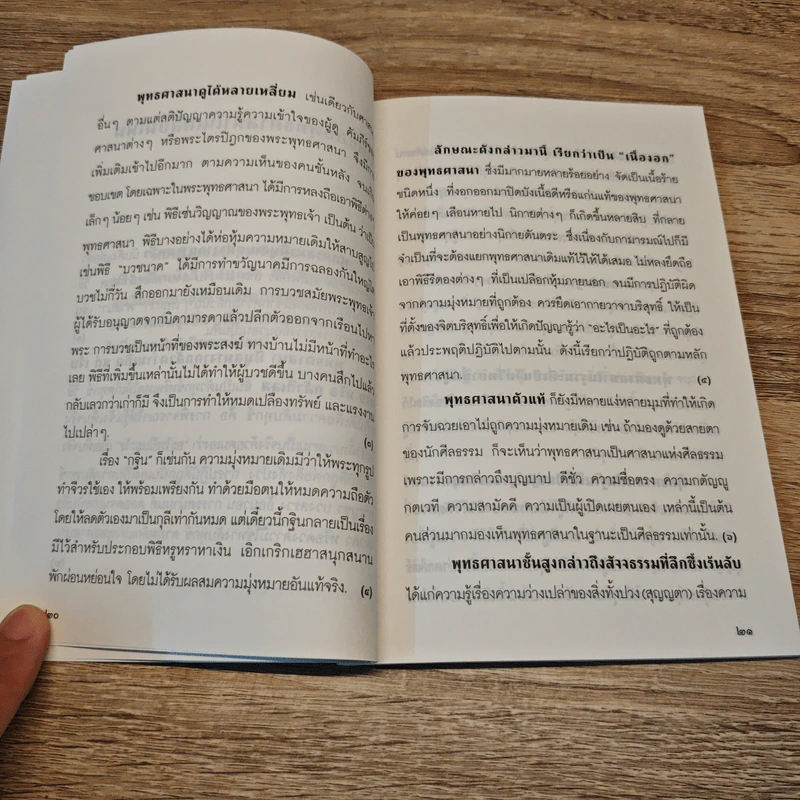 พุทธศาสนาดูได้หลายเหลี่ยม เช่นเดียวกับศาสนา
อื่นๆ ตามแต่สติปัญญาความรู้ความเข้าใจของผู้ดู คัมภีร์
ศาสนาต่างๆ หรือพระไตรปิฎกของพระพุทธศาสนา จึงมี
เพิ่มเติมเข้าไปอีกมาก ตามความเห็นของคนชั้นหลัง จน
ขอบเขต โดยเฉพาะในพระพุทธศาสนา ได้มีการหลงถือเอาพิธี
เล็กๆ น้อยๆ เช่น พิธีเซ่นวิญญาณของพระพุทธเจ้า เป็นต้น ว่าเป็น
พุทธศาสนา พิธีบางอย่างได้ห่อหุ้มความหมายเดิมให้สาบสูญไป
เช่นพิธี "บวชนาค" ได้มีการทำขวัญนาคมีการฉลองกันใหญ่โต
บวชไม่กี่วัน สึกออกมายังเหมือนเดิม การบวชสมัยพระพุทธเจ้า
ผู้ได้รับอนุญาตจากบิดามารดาแล้วปลีกตัวออกจากเรือนไปหา
พระ การบวชเป็นหน้าที่ของพระสงฆ์ ทางบ้านไม่มีหน้าที่ทำอะไร
เลย พิธีที่เพิ่มขึ้นเหล่านั้นไม่ได้ทำให้ผู้บวชดีขึ้น บางคนสึกไปแล้ว
กลับเลวกว่าเก่าก็มี จึงเป็นการทำให้หมดเปลืองทรัพย์ และแรงงาน
ไปเปล่าๆ. (๓)
เรื่อง "กฐิน" ก็เช่นกัน ความมุ่งหมายเดิมมีว่าให้พระทุกรูป
ทำจีวรใช้เอง ให้พร้อมเพรียงกัน ทำด้วยมือตนให้หมดความถือตัว
โดยให้ลดตัวเองมาเป็นกุลีเท่ากันหมด แต่เดี๋ยวนี้กฐินกลายเป็นเรื่อง
มีไว้สำหรับประกอบพิธีหรูหราหาเงิน เอิกเกริกเฮฮาสนุกสนาน
พักผ่อนหย่อนใจ โดยไม่ได้รับผลสมความมุ่งหมายอันแท้จริง. (๔)
๒๐
ลักษณะดังกล่าวมานี้ เรียกว่าเป็น "เนื้องอก"
ของพุทธศาสนา ซึ่งมีมากมายหลายร้อยอย่าง จัดเป็นเนื้อร้าย
ชนิดหนึ่ง ที่งอกออกมาปิดบังเนื้อดีหรือแก่นแท้ของพุทธศาสนา
ให้ค่อยๆ เลือนหายไป นิกายต่างๆ ก็เกิดขึ้นหลายสิบ ที่กลาย
เป็นพุทธศาสนาอย่างนิกายตันตระ ซึ่งเนื่องกับกามารมณ์ไปก็มี
จำเป็นที่จะต้องแยกพุทธศาสนาเดิมแท้ไว้ให้ได้เสมอ ไม่หลงยึดถือ
เอาพิธีรีตองต่างๆ ที่เป็นเปลือกหุ้มภายนอก จนมีการปฏิบัติผิด
จากความมุ่งหมายที่ถูกต้อง ควรยึดเอากายวาจาบริสุทธิ์ ให้เป็น
ที่ตั้งของจิตบริสุทธิ์เพื่อให้เกิดปัญญารู้ว่า "อะไรเป็นอะไร" ที่ถูกต้อง
แล้วประพฤติปฏิบัติไปตามนั้น ดังนี้เรียกว่าปฏิบัติถูกตามหลัก
พุทธศาสนา. (๕)
พุทธศาสนาตัวแท้ ก็ยังมีหลายแง่หลายมุมที่ทำให้เกิด
การจับฉวยเอาไม่ถูกความหมายเดิม เช่น ถ้ามองดูด้วยสายตา
ของนักศีลธรรม ก็จะเห็นว่าพุทธศาสนาเป็นศาสนาแห่งศีลธรรม
เพราะมีการกล่าวถึงบุญบาป ดีชั่ว ความซื่อตรง ความกตัญญู
กตเวที ความสามัคคี ความเป็นผู้เปิดเผยตนเอง เหล่านี้เป็นต้น
คนส่วนมากมองเห็นพุทธศาสนาในฐานะเป็นศีลธรรมเท่านั้น. (๖)
พุทธศาสนาชั้นสูงกล่าวถึงสัจจธรรมที่ลึกซึ้งเร้นลับ
ได้แก่ความรู้เรื่องความว่างเปล่าของสิ่งทั้งปวง (สุญญตา) เรื่องความ
๒๑